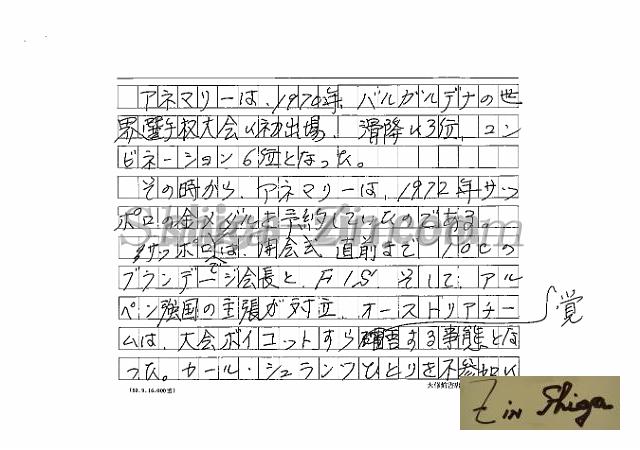 アネマリーは、1970年、バルガルデナの世
界選手権大会に初出場、滑降に3位、コン
ビネーション6位となった。
その時から、アネマリーは、1972年サッ
ポロの金メダルを予約していたのである
サッポロでは、開会式直前まで IOCの
ブランデージ会長と、F.I.S. そして、アル
ペン強国の主張が対立、オーストリアチー
ムは、大会ボイコットすら覚悟する事態とな
った。カール・シュランツひとりを不参加に
(88.9.16.000
Shiga Zin.com
Z in Shiga